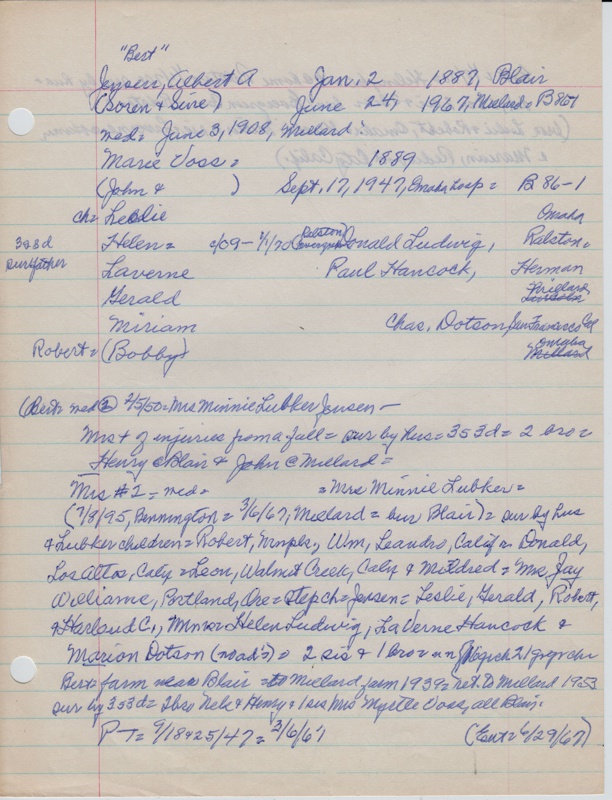 "Bert"
Jensen, Albert A Jan. 2 1887, Blair
(Soren & Sine) June 24, 1967, Millard = B867
med = June 3, 1908, Millard
Marie Voss = 1889
(John & ) Sept. 17, 1947, Omaha hosp = B 86-1
ch = Leslie Omaha
3 s 3 d Helen = c/09 - Ralston Donald Ludwig, Ralston =
sur father Laverne Paul Hancock, Herman
Gerald Millard Lincoln
Miriam Chas. Dotson San Francisco Cal
Robert = (Bobby) Omaha Millard
(Bert = med ② 2/5/50 = Mrs Minnie Lubker Jensen -
Mrs + of injuries from a fall = sur by hus = 3 s 3 d = 2 bro =
Henry @ Blair & John @ Millard =
Mrs #2 = med = = Mrs Minnie Lubker =
(7/8/95, Bennington = 3/6/67, Millard = bur Blair) = sur by hus
& Lubker children = Robert, Mnpls, Wm, Leandro, Calif = Donald,
Los Altos, Calif = Leon, Walnut Creek, Calif & Mildred = Mrs Jay
Williams, Portland, Ore = Step ch = Jensen = Leslie, Gerald, Robert,
& Harland C., Mmes Helen Ludwig, LaVerne Hancock &
Marion Dotson (noad's) = 2 sis & 1 bro = 21 gr gr chr
Bert = farm near Blair = to Millard farm 1939 = ret. to Millard 1953
sur by 3 s 3 d = 2 bro Nels & Henry & 1 sis Mrs Myrtle Voss, all Blair.
P-T = 9/18 & 25/47 = 3/6/67 (Ent = 6/29/67)